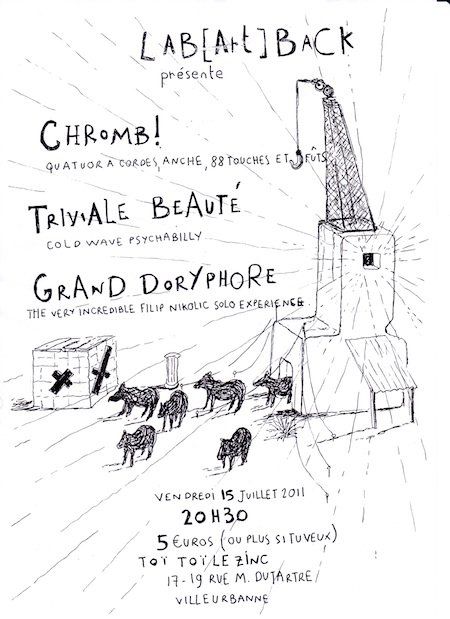 LAB[Art]BACK
présente
CHROMB!
QUATUOR A CORDES, ANCHE, 88 TOUCHES ET FÛTS
TRIVIALE BEAUTÉ
COLD WAVE PSYCHABILLY
GRAND DORYPHORE
THE VERY INCREDIBLE FILIP NIKOLIC SOLO EXPERIENCE
VENDREDI 15 JUILLET 2011
20H30
5 EUROS (OU PLUS SI TU VEUX)
TOÏ TOÏ LE ZINC
17-19 RUE M. DUTARTRE
VILLEURBANNE